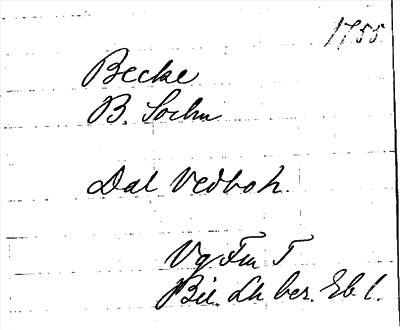 1755.
Becke
B. Socken
Dal Vedboh.
Vg Fm T
Bil. Lh ber. Eb 1.